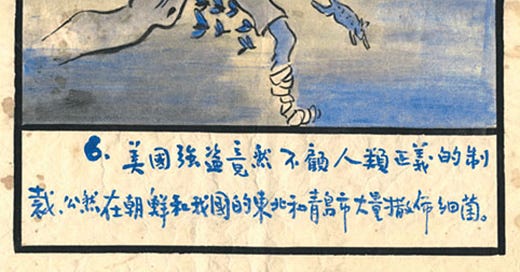 6. 美國強盜竟然不顧人類正義的制
裁，公然在朝鮮和我國的東北和青島市大量撒佈細菌。